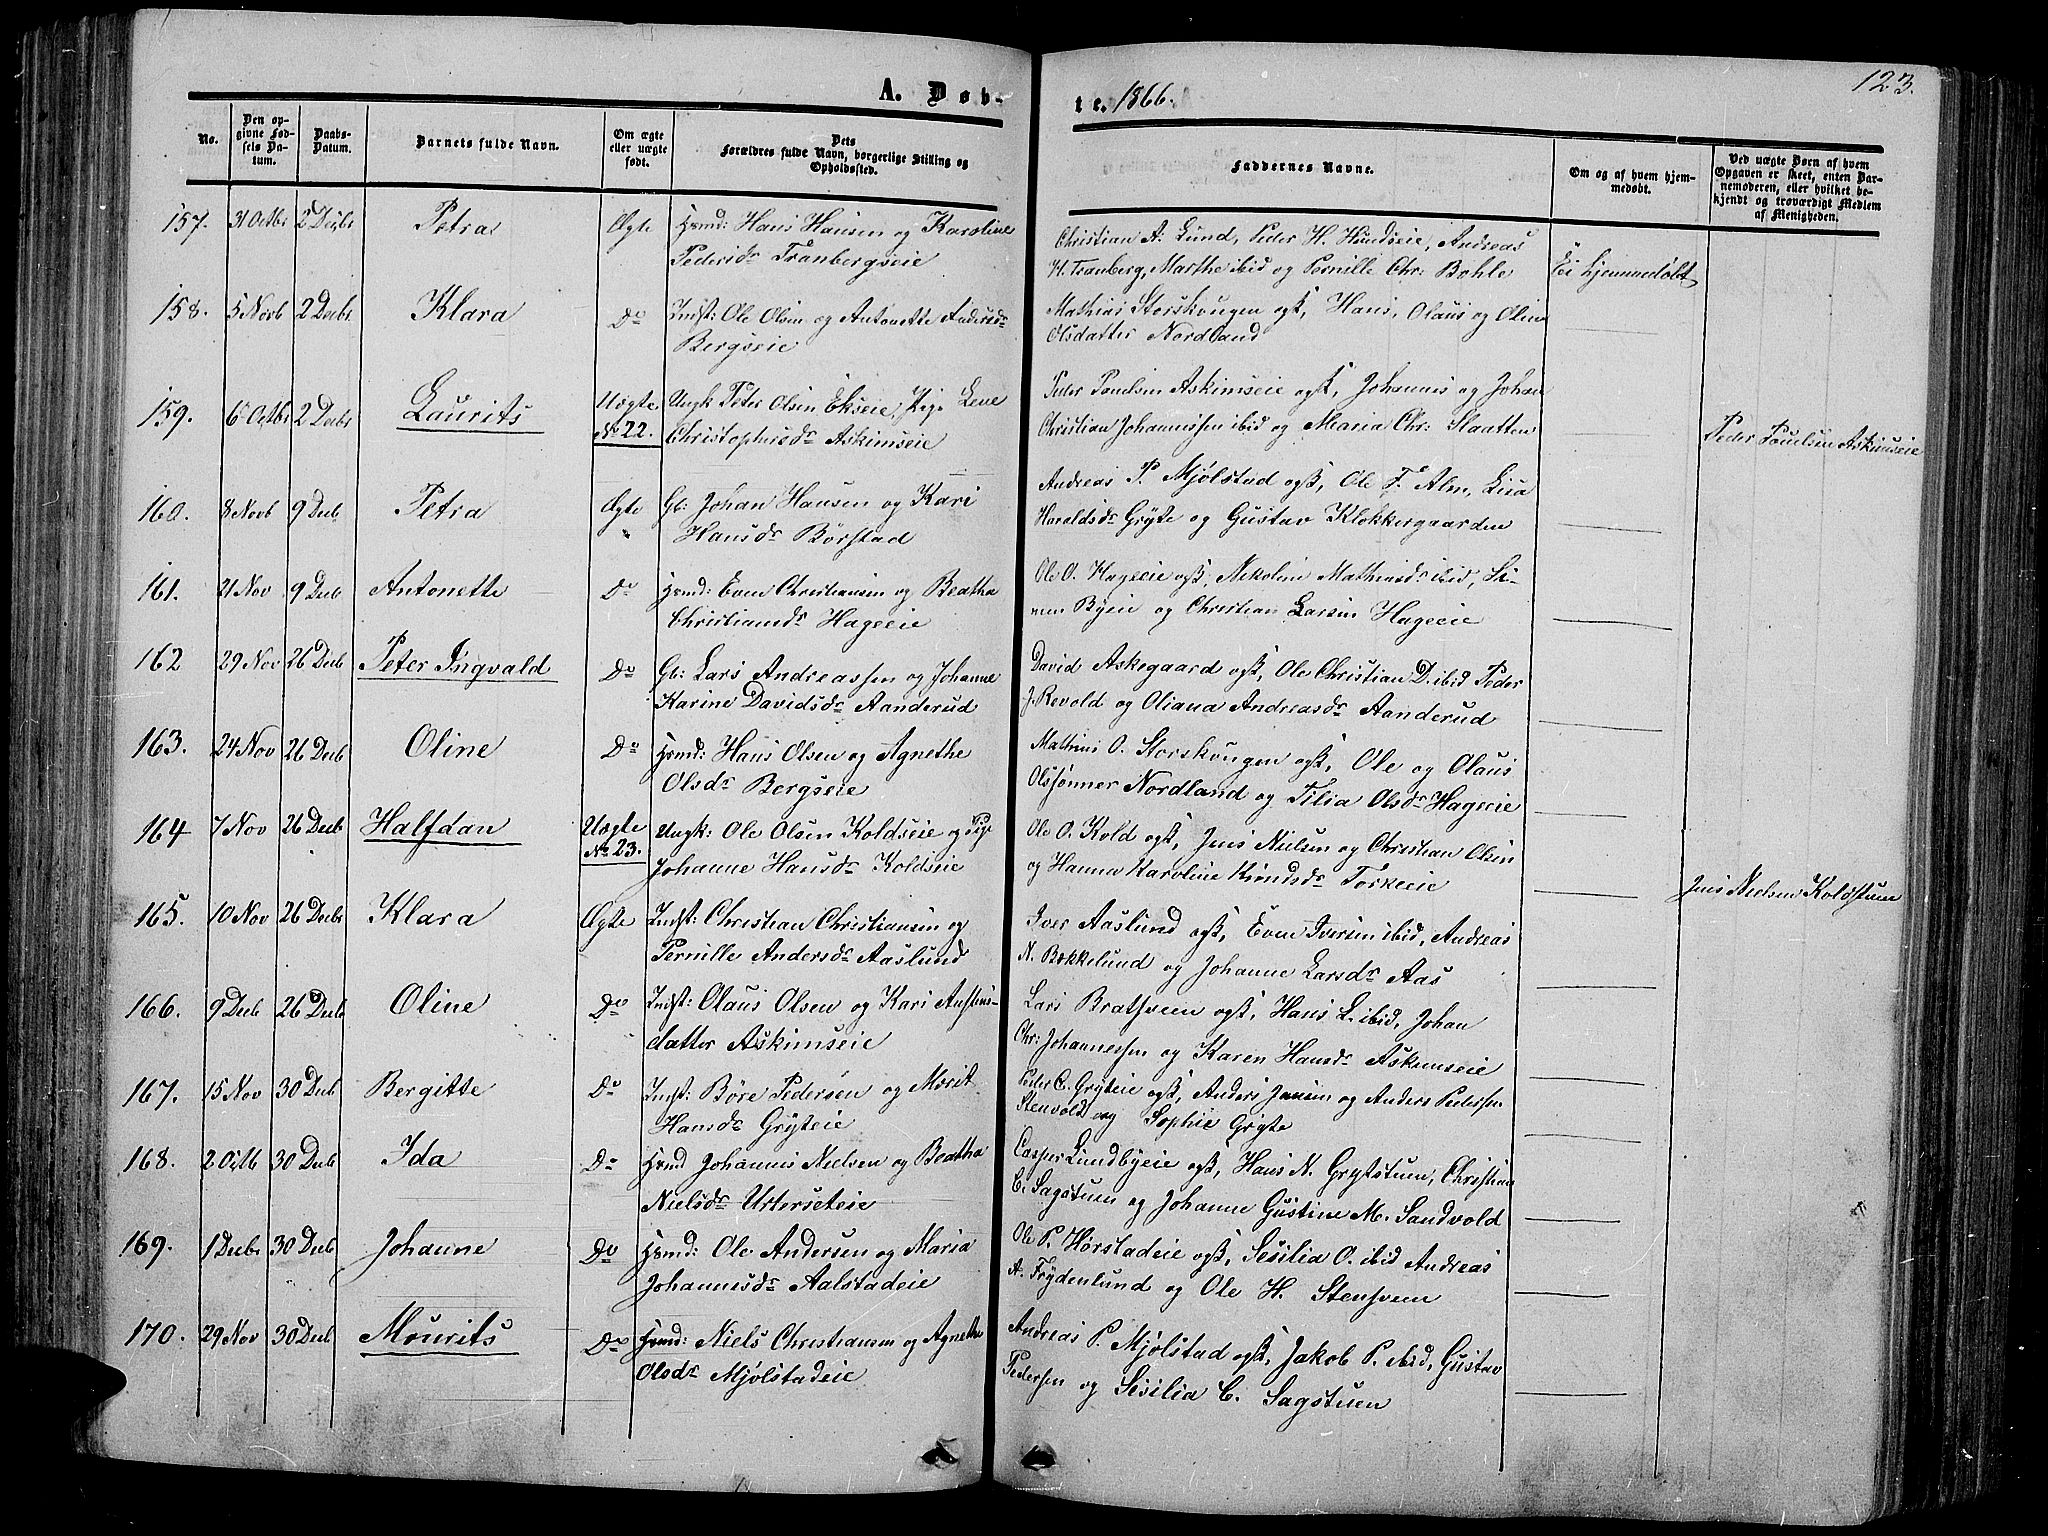 123.
A. Døb-
te. 1866.
No.
Den op-
givne Fød-
sels Da-
tum.
Daabs-
Datum.
Barnets fulde Navn.
Om ægte
eller uægte
født.
Dets
Forældres fulde Navn, borgerlige Stilling og
Opholdssted.
Faddernes Navne.
Om og af hvem hjem-
medøbt.
Ved uægte Børn af hvem
Opgaven er skeet, enten Bar-
nemoderen, eller hvilket be-
kjendt og troværdigt Medlem
af Menigheden.
157. 31 Octbr 2 Decbr Petra Ægte Hsmd: Hans Hansen og Karoline
Pedersdr Tranbergseie
Christian A. Lund, Peder H. Hundseie, Andreas
H. Tranberg, Marthe ibid og Pernille Chr: Bøhle
Ei hjemmedøbt
158. 5 Novb 2 Decbr Klara Do Indst: Ole Olsen og Antonette Andersdr
Bergseie
Mathias Storskougen ogß, Hans, Olaus og Oline
Olsdatter Nordland
159. 6 Octbr 2 Decbr Laurits Uægte Ungk Peter Olsen Ekseie, Pige Lene
No 22. Christophersdr Askimseie
Peder Poulsen Askimseie ogß, Johannes og Johan
Christian Johannessen ibid og Maria Chr: Slaatten
Peder Poulsen Askimseie
160. 8 Novb 9 Decb Petra Ægte Gb: Johan Hansen og Kari
Hansdr Børstad
Andreas P. Mjølstad ogß, Ole F. Alm, Lisa
Haroldsdr Gryte og Gustav Klokkergaarden
161. 21 Nov 9 Decb Antonette Do Hsmd: Even Christiansen og Beatha
Christiansdr Hageeie
Ole O. Hageeie ogß, Nikoline Mathiasdr ibid, Si-
men Byeie og Christian Larsen Hageeie
162 29 Nov 26 Decb Peter Ingvald Do Gb: Lars Andreassen og Johanne
Karine Davidsdr Aanderud
David Askegaard ogß, Ole Christian D. ibid Peder
J. Revold og Oliana Andreasdr Aanderud
163. 24 Nov 26 Decb Oline Do Hsmd: Hans Olsen og Agnethe
Olsdr Bergseie
Mathias O. Storskougen ogß, Ole og Olaus
Olssønner Nordland og Tilia Olsdr Hageeie
164 7 Nov 26 Decb Halfdan Uægte Ungk: Ole Olsen Koldseie og Pige
No 23. Johanne Hansdr Koldseie
Ole O. Kold ogß, Jens Nielsen og Christian Olsen
og Hanna Karoline Torkeeie
Jens Nielsen Koldstuen
165. 10 Nov 26 Decbr Klara Ægte Indst: Christian Christiansen og
Pernille Andersdr Aaslund
Iver Aaslund ogß, Even Iversen ibid, Andreas
N. Bækkelund og Johanne Larsdr Aas
166. 9 Decb 26 Decb Oline Do Indst: Olaus Olsen og Kari Austens-
datter Askimseie
Lars Brathveen ogß, Hans L. ibid, Johan
Chr: Johannessen og Karen Hansdr Askimseie
167. 15 Nov 30 Decb Bergitte Do Indst: Børe Pedersen og Marit
Hansdr Gryteie
Peder C. Gryteie ogß, Anders Jensen og Anders Pedersen
Stenvold og Sophie Gryte
168. 2 Octb 30 Decb Ida Do Hsmd Johannes Nielsen og Beatha
Nielsdr Ulterseteie
Casper Lundbyeie ogß, Hans N. Grytstuen, Christian
C. Sagstuen og Johanne Gustine M. Sandvold
169. 1 Decbr 30 Decb Johanne Do Hsmd: Ole Andersen og Maria
Johannesdr Aalstadeie
Ole P. Horstadeie ogß, Sesilia O. ibid Andreas
A. Frydenlund og Ole H. Stensveen
170. 29 Nov 30 Decb Mourits Do Hsmd: Niels Christiansen og Agnethe
Olsdr Mjølstadeie
Andreas P. Mjølstad ogß, Jakob P. ibid, Gustav
Pedersen og Sesilia C. Sagstuen